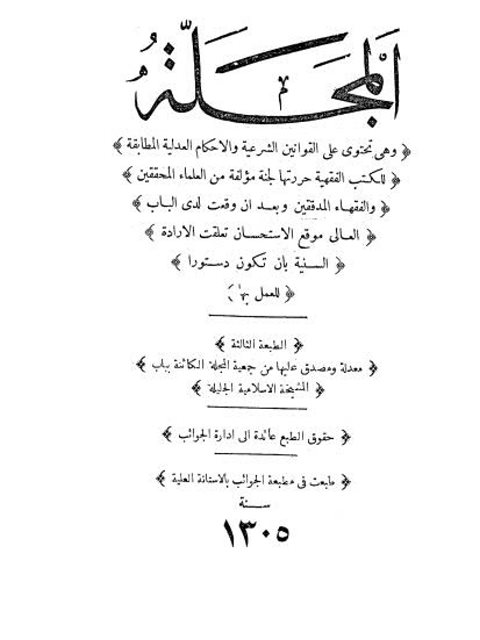 اَلْمَجَلَّةُ
﴿ وهى تحتوى على القوانين الشرعية والاحكام العدلية المطابقة ﴾
﴿ للكتب الفقهية حررتها لجنة مؤلفة من العلماء المحققين ﴾
﴿ والفقهاء المدققين وبعد ان وقعت لدى الباب ﴾
﴿ العالى موقع الاستحسان تعلقت الارادة ﴾
﴿ السنية بان تكون دستورا ﴾
﴿ للعمل بها ﴾
﴿ الطبعة الثالثة ﴾
﴿ معدلة ومصدق عليها من جمعية المجلة الكائنة بباب ﴾
﴿ المشيخة الاسلامية الجليلة ﴾
﴿ حقوق الطبع عائدة الى ادارة الجوائب ﴾
﴿ طبعت فى مطبعة الجوائب بالاستانة العلية ﴾
سنة
١٣٠٥